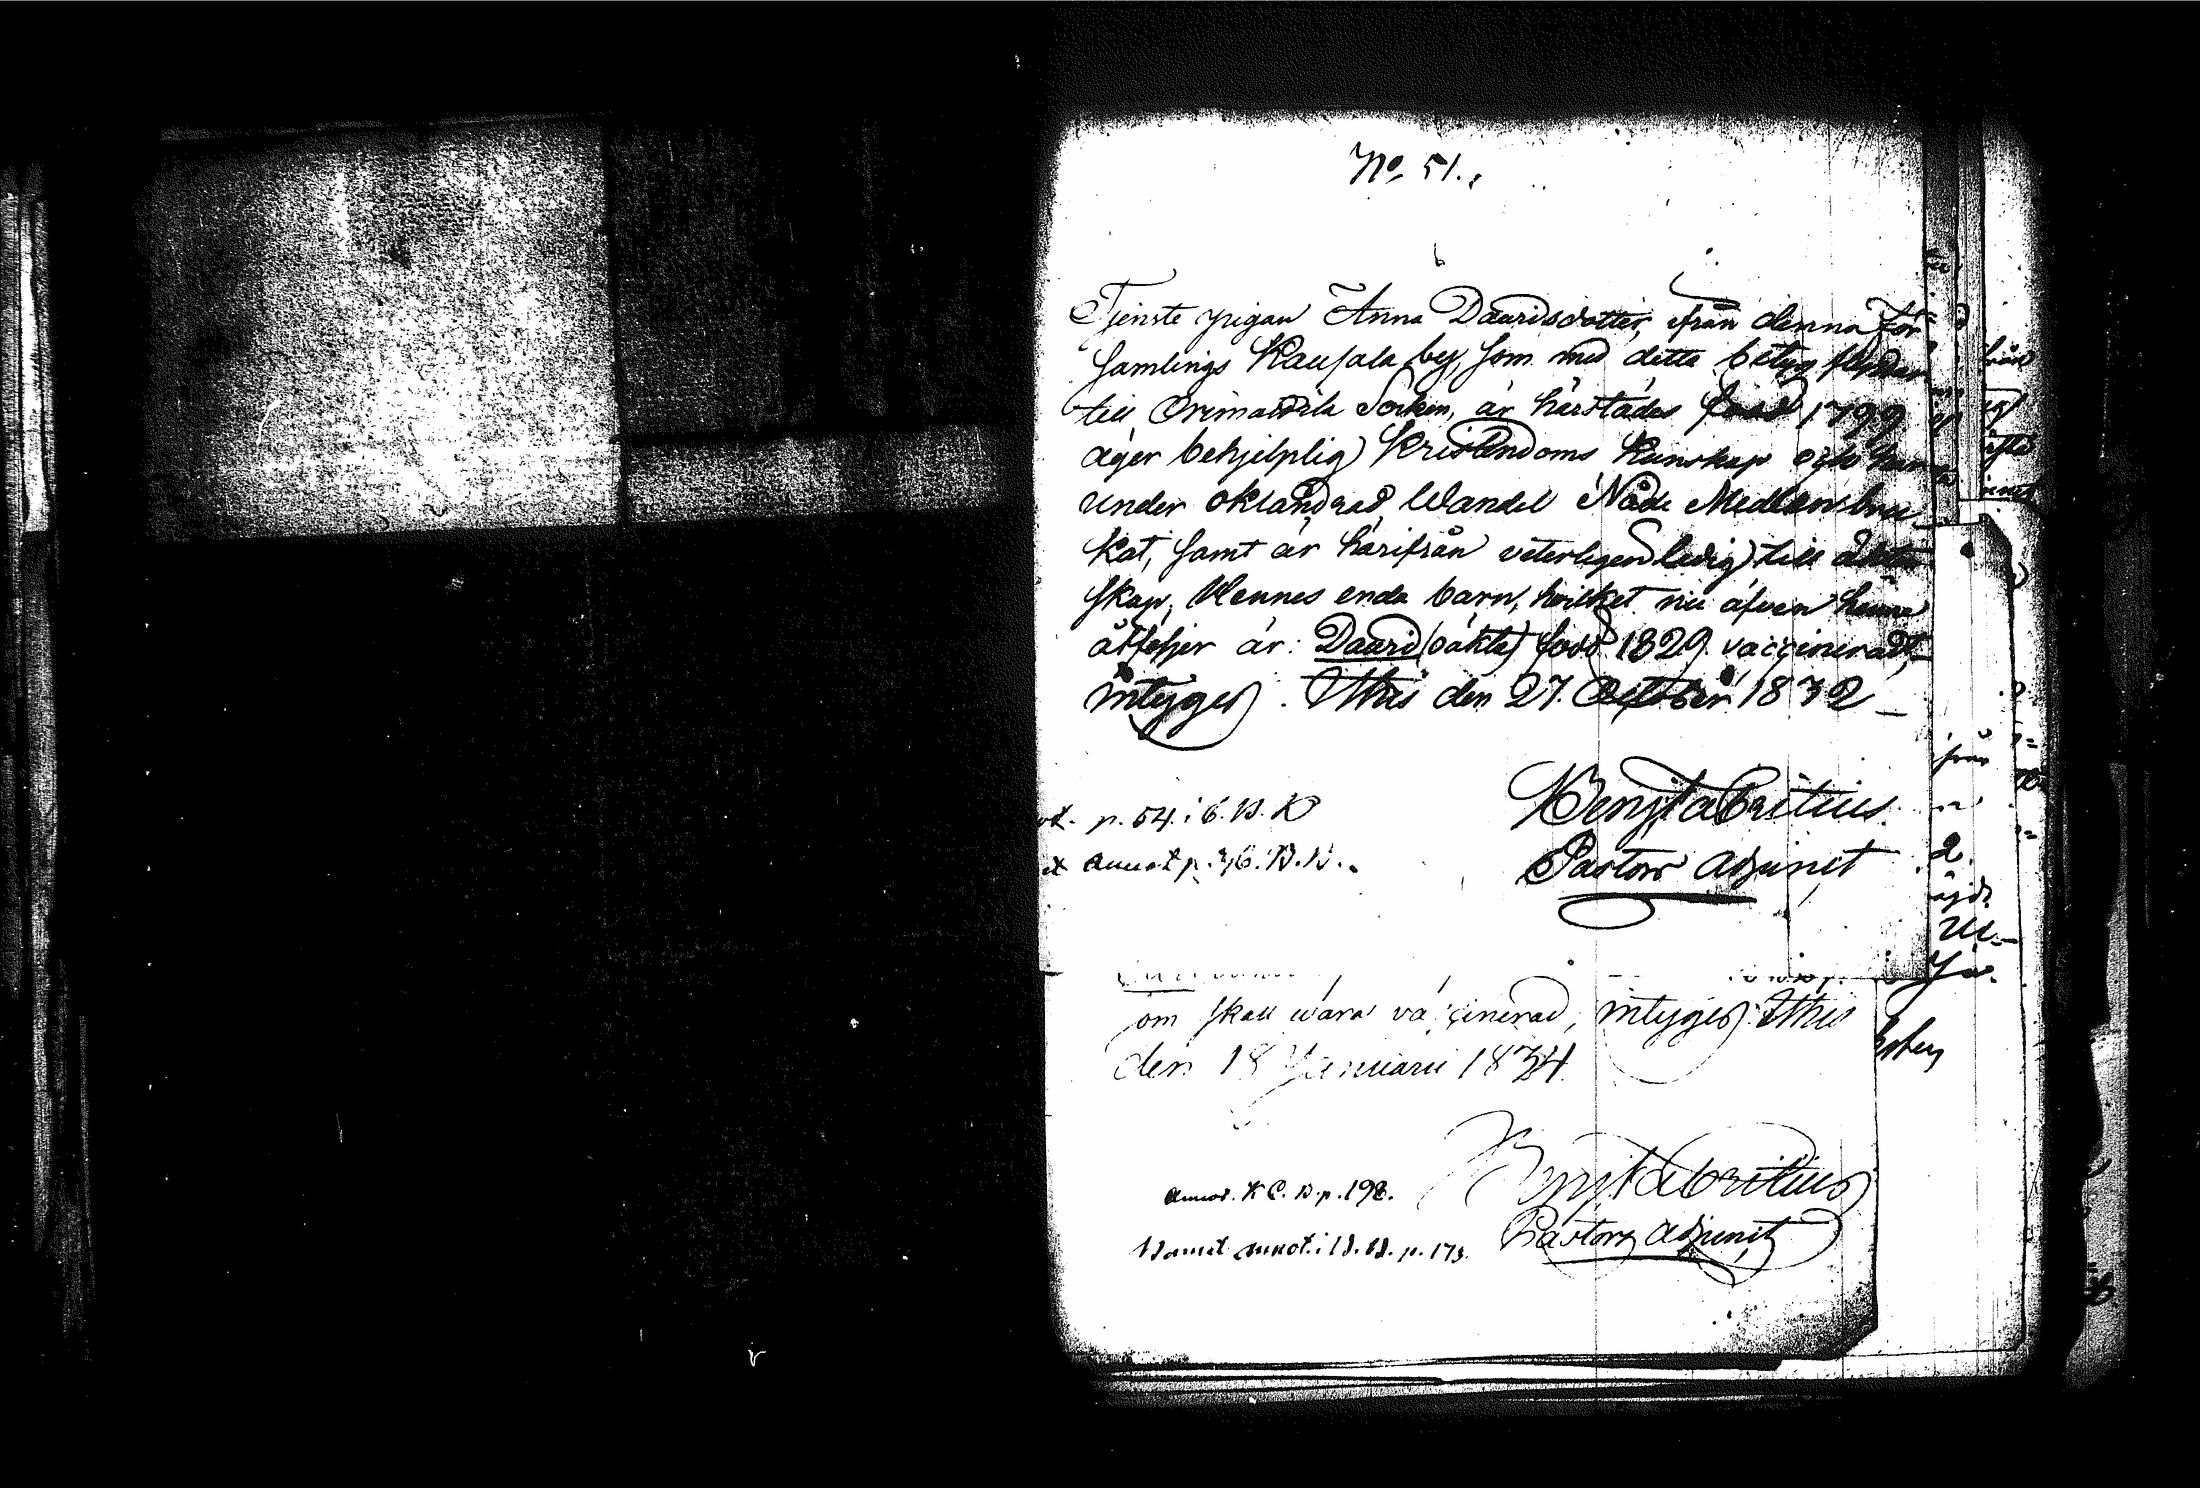 No. 51.
Tjenste pigan Anna Davidsdotter, från denna För-
samlings Kausala by, som med detta betyg flyttar
till Orimattila Socken, är härstädes född 1799
äger behjelplig Kristendoms Kunskap och har
under oklandrad Wandel Nåde Medlen bru-
kat, samt är härifrån veterligen ledig till äkten-
skap, Hennes enda barn, hvilket nu äfven henne
åtföljer är: David (oäkta) född 1829. vaccinerad,
intyges. Ithis den 27. October 1832
Benj Fabritius.
p. 54. i C. B. K
Pastors Adjunct
annot p. 36. B. B.
om skall wara vaccinerad, intygas Ithis
den 18 Januarii 1834.
Benj Fabritius
Annot. K C. B. p. 198.
Pastors Adjunct
annot. i B. B. p. 173.